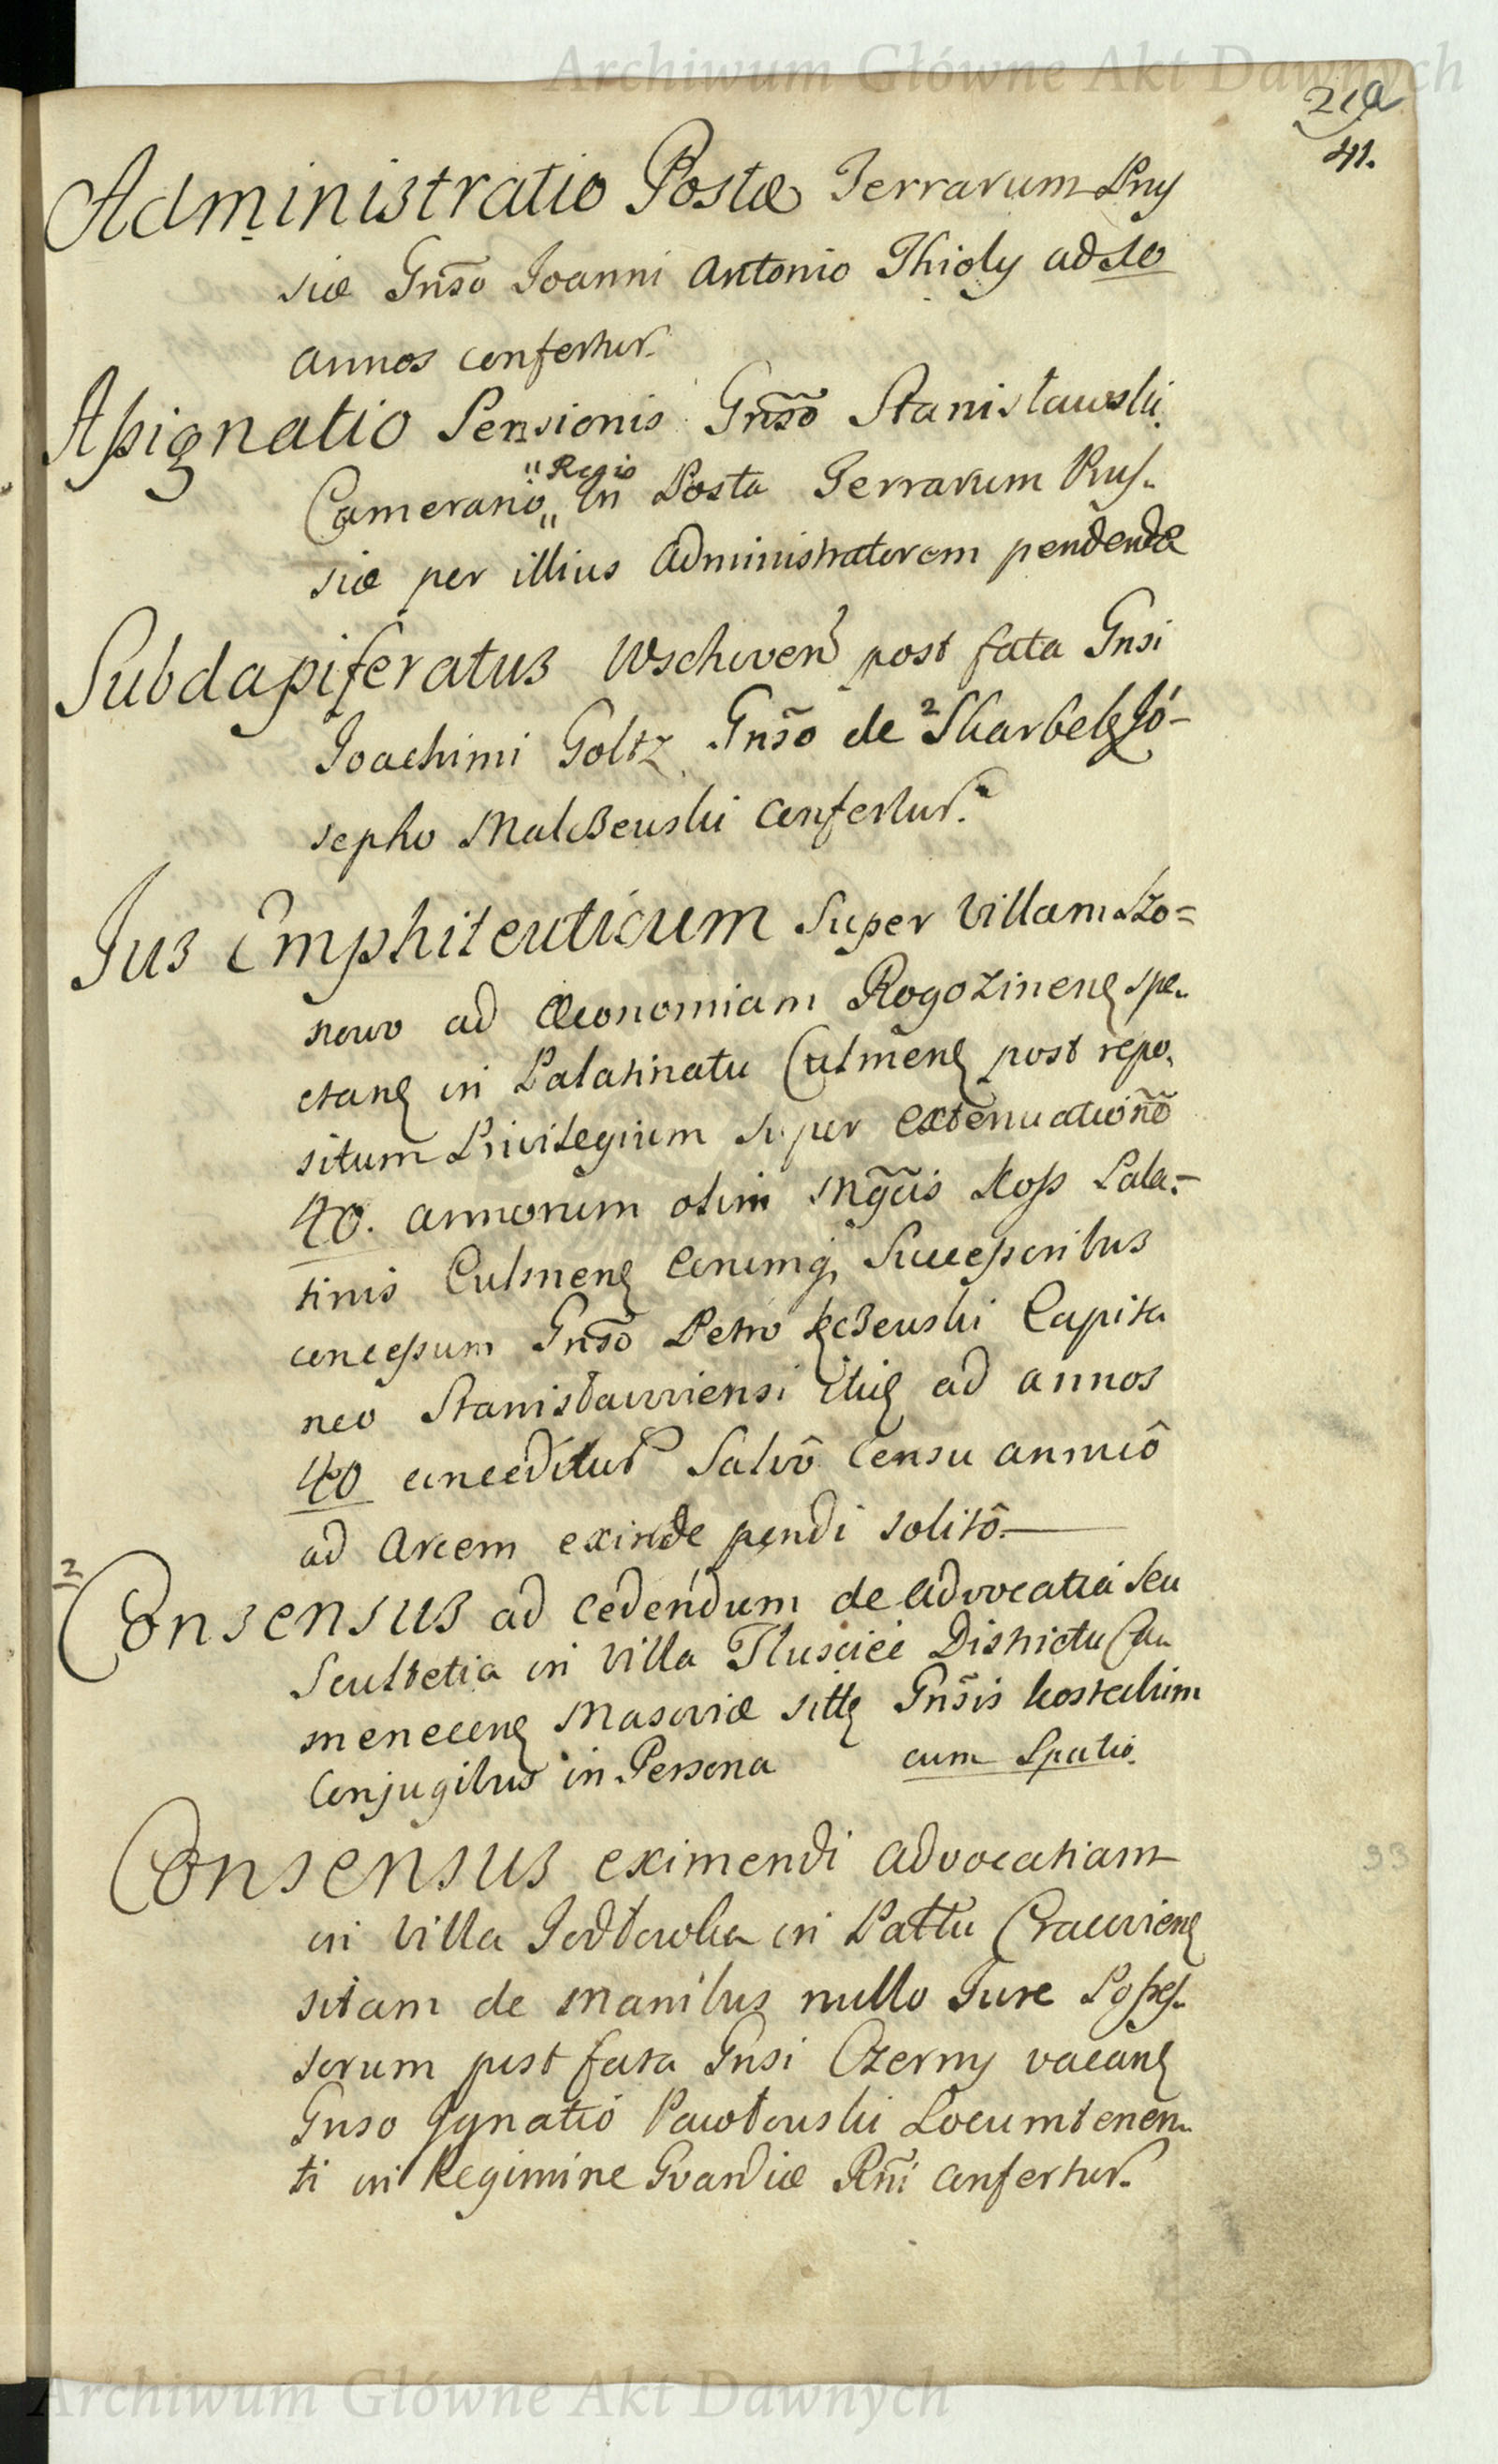 Archiwum Główne Akt Dawnych
21a
41.
Administratio Postæ Terrarum Pruſ
siæ Gnso Joanni Antonio Thioly ad 10
annos confertur.
Aßignatio Pensionis Gnso Stanisławski
Camerario "Regio" in Posta Terrarum Pruſ-
siæ per illius Administratorem pendendæ
Subdapiferatus Wschoven post fata Gnsi
Joachimi Goltz Gnso de Skarbek Jo-
sepho Malczewski confertur.
Jus Emphiteuticum super Villam Szo=
nowo ad Œconomiam Rogozinens spe-
ctans in Palatinatu Culmens post repo-
situm Privilegium super extenuatione
40. annorum olim Mgcis Koß Pala-
tinis Culmens eorumq Succeßoribus
conceßum Gnso Petro Kczewski Capita
neo Stanisławiensi itius ad annos
40 conceditur Salvô Censu annuô
ad Arcem exinde pendi solitô.
2
Consensus ad cedendum de advocatia seu
Scultetia in Villa Tluscice Districtu Ca-
menecens Masoviæ sitts Gnsis Kosteckim
Conjugibus in Persona cum Spatio.
Consensus eximendi advocatiam
in Villa Jodłowka in Pattu Cracoviens
sitam de manibus nullo Jure Poßeſ-
sorum post fata Gnsi Czerny vacans
Gnso Ignatio Pawłowski Locumtenen-
ti in Regimine Gvardiæ Rni confertur.
93
Archiwum Główne Akt Dawnych